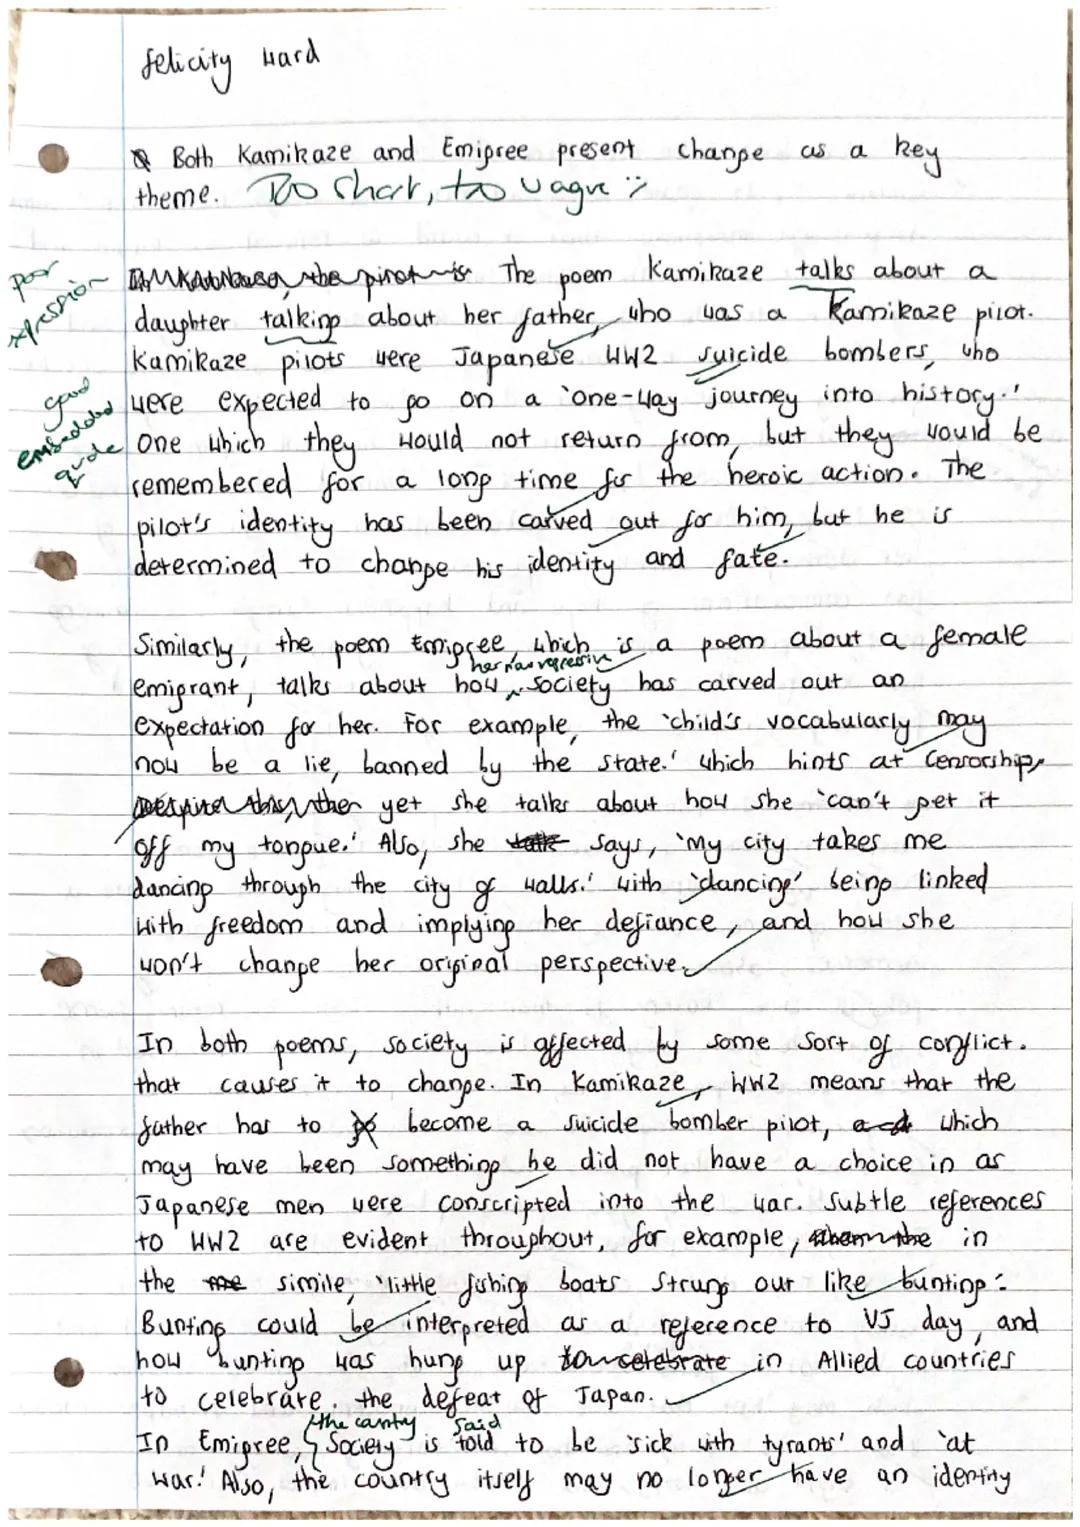 Felicity Ward
Both Kamikaze and Emigree present change as a key
theme. Too short, too vague
poor
expression
The poem Kamikaze talks about a
daughter talking about her father, who was a Kamikaze pilot.
Kamikaze pilots were Japanese WW2 suicide bombers, who
good
embedded
quote
were expected to go on a 'one-way journey into history.'
One which they would not return from, but they would be
remembered for a long time for the heroic action. The
pilot's identity has been carved out for him, but he is
determined to change his identity and fate.
Similarly, the poem Emigree, which is a poem about a female
her now regressive
emigrant, talks about how society has carved out an
expectation for her. For example, the 'child's vocabularly may
now be a lie, banned by the state.' which hints at censorship,
yet she talks about how she 'can't get it
off my tongue.' Also, she says, 'My city takes me
dancing through the city of walls.' with 'dancing' being linked
with freedom and implying her defiance, and how she
won't change her original perspective.
In both poems, society is affected by some sort of conflict.
that causes it to change. In Kamikaze, WW2 means that the
father has to become a suicide bomber pilot, which
may have been something he did not have a choice in as
Japanese men were conscripted into the war. Subtle references
to WW2 are evident throughout, for example, in
the simile, 'little fishing boats strung out like bunting.'
Bunting could be interpreted as a reference to VJ day, and
how bunting was hung up in Allied countries
to celebrate. the defeat of Japan.
the cantry said
In Emigree, Society is told to be 'sick with tyrants' and 'at
war.' Also, the country itself may no longer have an identity